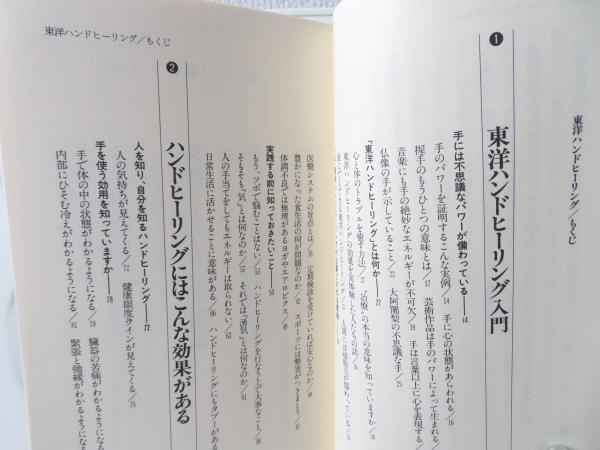 東洋ハンドヒーリング/もくじ
❶ 東洋ハンドヒーリング入門
手には不思議なパワーが備わっている——14
手のパワーを証明するこんな実例/14 手に心の状態があらわれる/16
握手のもうひとつの意味とは/17 芸術作品は手のパワーによって生まれる
音楽にも手の絶妙なエネルギーが不可欠/19 手は言葉以上に心を表現する/
仏像の手が示していること/22 大阿闍梨の不思議な手/25
「東洋ハンドヒーリング」とは何か——27
心と体のトラブルを癒す方法/27 “治療”の本当の意味を知っていますか/28
東洋ハンドヒーリングの効果を実体験した人たちの話/30
東洋ハンドヒーリング/もくじ
医療システムの盲点とは/38 定期検診を受けていれば安心なのか/
豊かになった食生活の何が問題なのか/42 スポーツには弊害がつきまとう/
体調不良では無理があるヨガやエアロビクス/49
実践する前に知っておきたいこと——53
もう、ツボで悩むことはない/53 ハンドヒーリングを行なう上で大事なこと/
そもそも「気」とは何なのか/57 それでは「湧気」とは何なのか/60
人の手当てをしてもエネルギーは取られない/63
日常生活に活かせることに意味がある/66 ハンドヒーリングにもタブーがある
❷ ハンドヒーリングにはこんな効果がある
人を知り、自分を知るハンドヒーリング——72
人の気持ちが見えてくる/72 健康限度ラインが見えてくる/75
手を使う効用を知っていますか——78
手で体の中の状態がわかるようになる/78 臓器の苦痛がわかるようになる
内部にひそむ冷えがわかるようになる/81 緊張と弛緩がわかるようになる